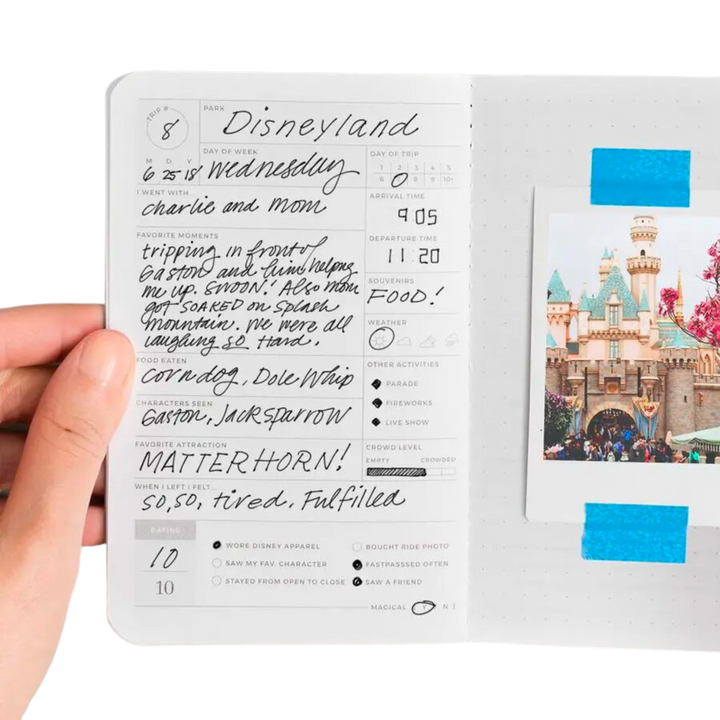 TRIP # 8
PARK Disneyland
DAY OF WEEK
M D Y
6 25 18 Wednesday
DAY OF TRIP
1 2 3 4 5
6 8 9 10+
I WENT WITH...
charlie and mom
ARRIVAL TIME
9 05
DEPARTURE TIME
11:20
FAVORITE MOMENTS
tripping in front of
Gaston and him helping
me up. SWOON! Also mom
got SOAKED on splash
mountain. We were all
laughing so Hard.
SOUVENIRS
FOOD!
WEATHER
FOOD EATEN
corndog, Dole Whip
OTHER ACTIVITIES
PARADE
FIREWORKS
LIVE SHOW
CHARACTERS SEEN
Gaston, Jack sparrow
FAVORITE ATTRACTION
MATTERHORN!
CROWD LEVEL
EMPTY CROWDED
WHEN I LEFT I FELT...
so, so, tired. Fulfilled
RATING
10
10
WORE DISNEY APPAREL
SAW MY FAV. CHARACTER
STAYED FROM OPEN TO CLOSE
BOUGHT RIDE PHOTO
FASTPASSSED OFTEN
SAW A FRIEND
MAGICAL Y N